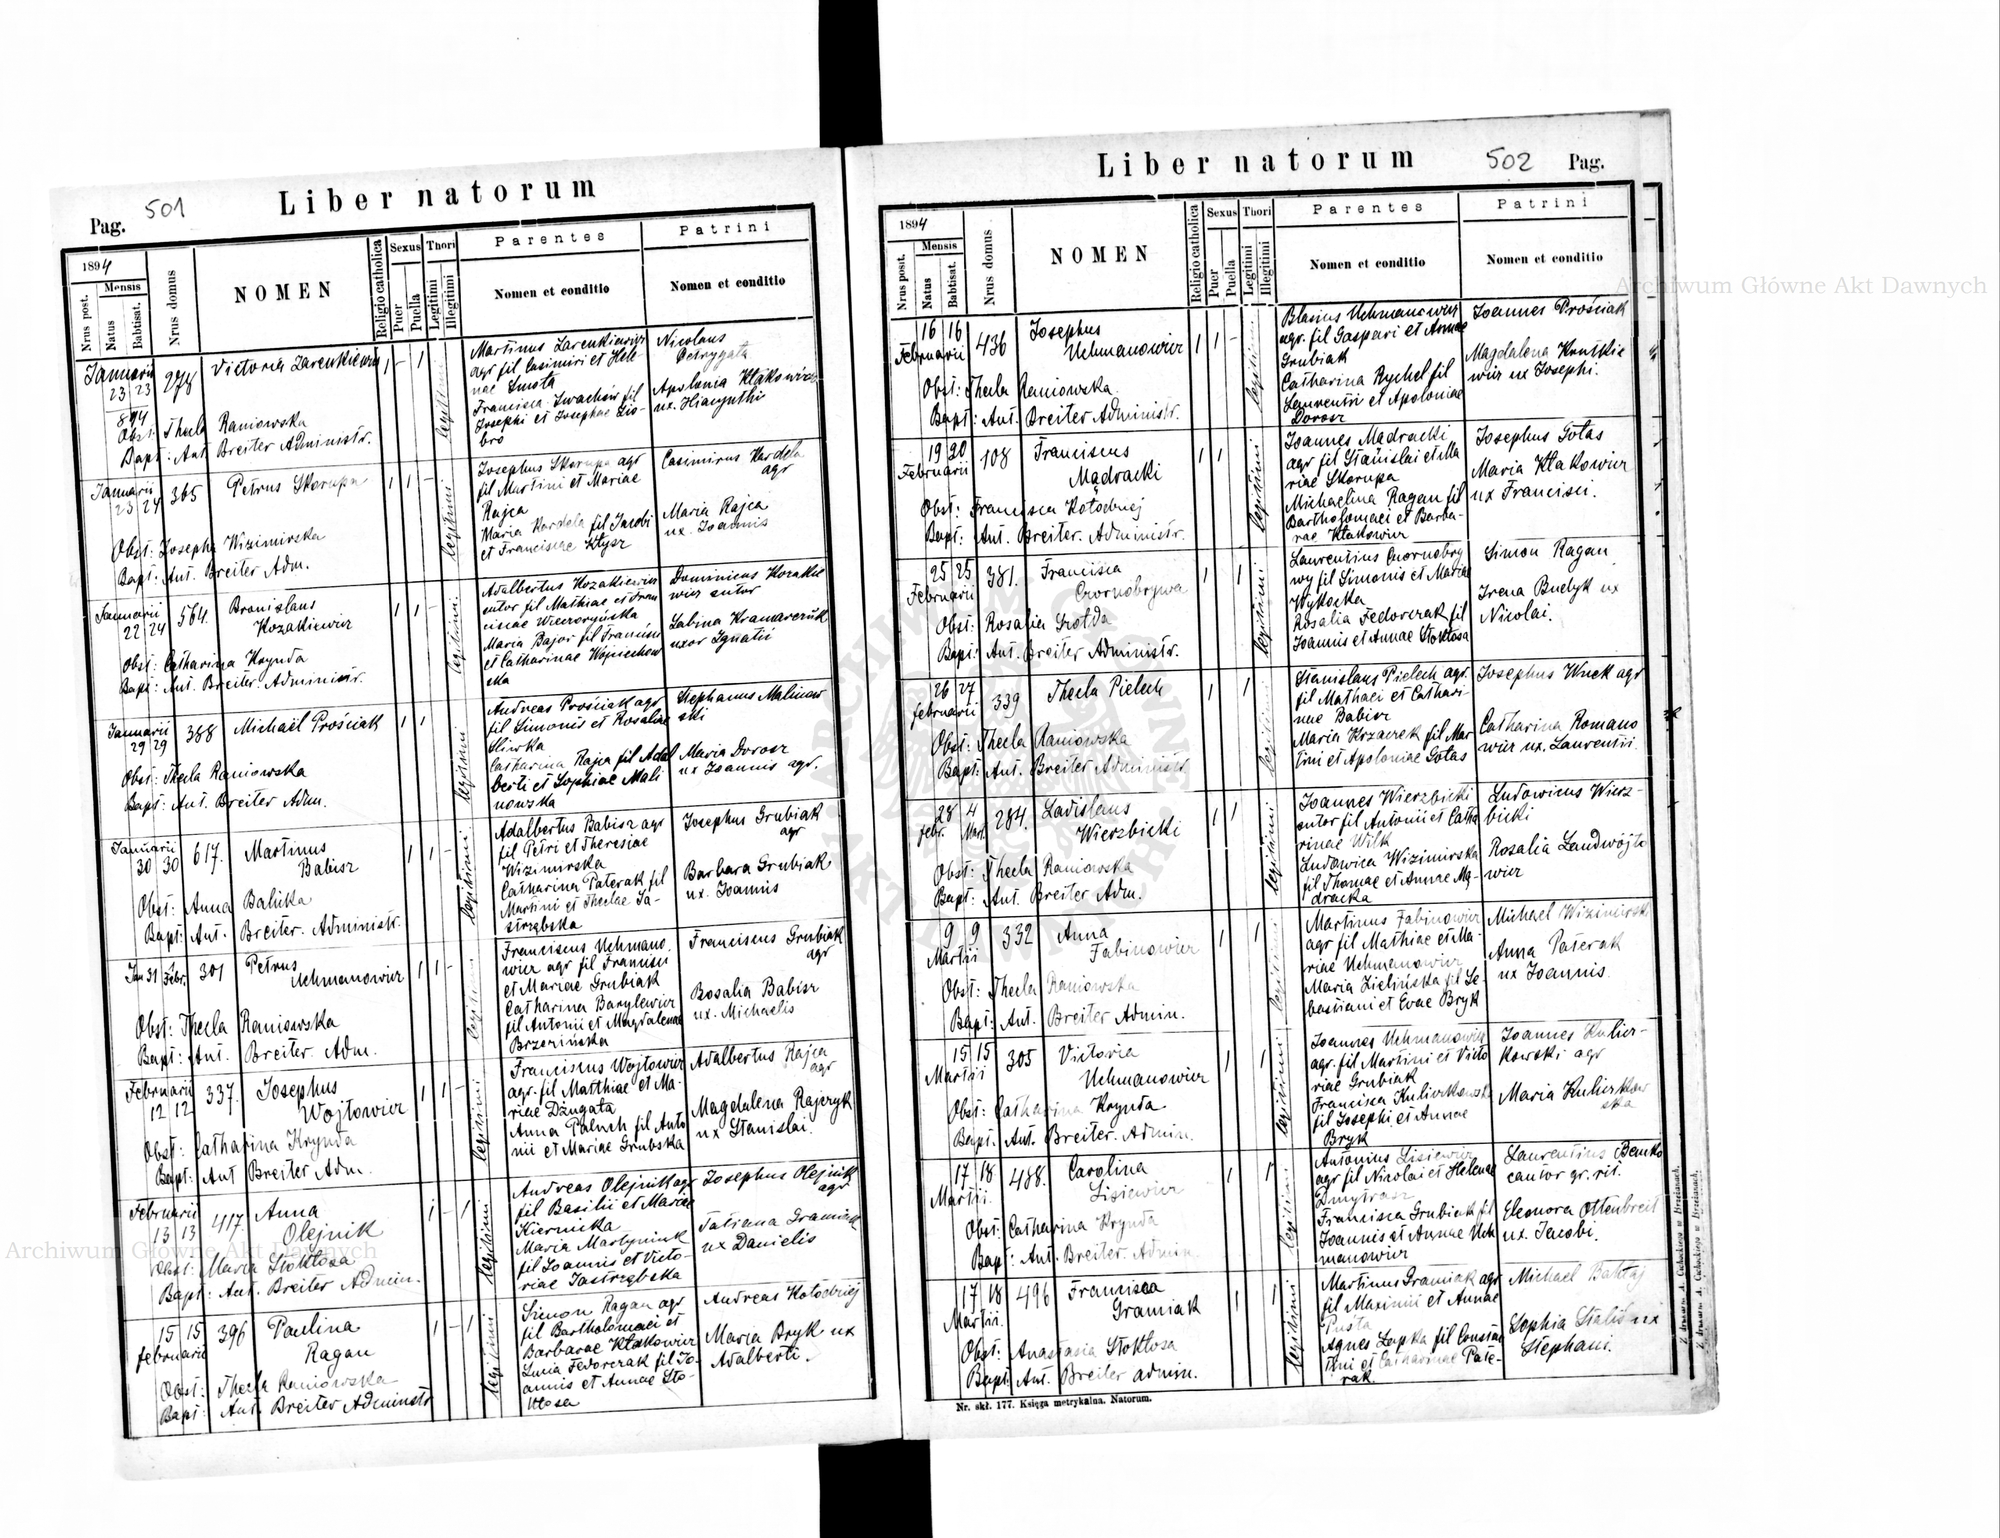 Liber natorum
Pag. 501
1894
Nrus post.
Mensis
Natus
Babtisat.
Nrus domus
NOMEN
Religio catholica
Sexus
Puer
Puella
Thori
Legitimi
Illegitimi
Parentes
Nomen et conditio
Patrini
Nomen et conditio
Januarii
23 23
894
278
Victoria Zarenkiewicz
1 - 1
legitimi
Martinus Zarenkiewicz
agr fil Casimiri et Hele-
nae Smota
Francisca Iwachów fil
Josephi et Josephae Zio-
bro
Nicolaus
Petrygata
Apolonia Kłakowicz
ux. Hiacynthi
Obst: Thecla Raniowska
Bapt: Ant Breiter Administr.
Januarii
23 24
365
Petrus Skorupa
1 1 -
legitimi
Josephus Skorupa agr
fil Martini et Mariae
Rajca
Maria Kardela fil Jacobi
et Franciscae Kłysz
Casimirus Kardela
agr
Maria Rajca
ux. Joannis
Obst: Josepha Wizimirska
Bapt: Ant. Breiter Adm.
Januarii
22 24
564.
Bronislaus
Kozakiewicz
1 1 -
legitimi
Adalbertus Kozakiewicz
sutor fil Mathiae et Fran
ciscae Wieczoryńska
Maria Bajor fil Francisci
et Catharinae Wojciechow
ska
Dominicus Kozakie
wicz sutor
Sabina Kramarczuk
uxor Ignatii
Obst: Catharina Krynda
Bapt: Ant. Breiter. Administr.
Januarii
29 29
388
Michaël Prościak
1 1
legitimi
Andreas Prościak agr
fil Simonis et Rosaliae
Sliwka
Catharina Rajca fil Adal
berti et Sophiae Mali
nowska
Stephanus Malinow
ski
Maria Dorosz
ux Joannis agr.
Obst: Thecla Raniowska
Bapt: Ant. Breiter Adm.
Januarii
30 30
617.
Martinus
Babisz
1 1 -
legitimi
Adalbertus Babisz agr
fil Petri et Theresiae
Wizimirska
Catharina Paterak fil
Martini et Theclae Ja-
strzębska
Josephus Grubiak
agr
Barbara Grubiak
ux. Joannis
Obst: Anna Baluka
Bapt: Ant. Breiter. Administr.
Jan 31 Febr.
301
Petrus
Uchmanowicz
1 1 -
legitimi
Franciscus Uchmano
wicz agr fil Francisci
et Mariae Grubiak
Catharina Barylewicz
fil Antonii et Magdalenae
Brzezińska
Franciscus Grubiak
agr
Rosalia Babisz
ux. Michaelis
Obst: Thecla Raniowska
Bapt: Ant. Breiter. Adm.
Februarii
12 12
337.
Josephus
Wojtowicz
1 1 -
legitimi
Franciscus Wojtowicz
agr. fil Matthiae et Ma-
riae Dzugata
Anna Paluch fil Anto
nii et Mariae Grubska
Adalbertus Rajca
agr
Magdalena Rajczyk
ux Stanislai.
Obst: Catharina Krynda
Bapt: Ant Breiter Adm.
Februarii
13 13
417.
Anna
Olejnik
1 - 1
legitimi
Andreas Olejnik agr
fil Basilii et Mariae
Kiernicka
Maria Martyniuk
fil Joannis et Victo-
riae Jastrzębska
Josephus Olejnik
agr
Tatiana Graniak
ux Danielis
Obst: Maria Stokłosa
Bapt: Ant. Breiter Admin.
15 15
februarii
396
Paulina
Ragan
1 - 1
legitimi
Simon Ragan agr
fil Bartholomaei et
Barbarae Kłakowicz
Lucia Fedorczak fil Jo-
annis et Annae Sto-
kłosa
Andreas Kołodziej
Maria Bryk ux
Adalberti.
Obst: Thecla Raniowska
Bapt: Ant. Breiter Administr
Liber natorum
502 Pag.
1894
Nrus posit.
Mensis
Natus
Babtisat.
Nrus domus
NOMEN
Religio catholica
Sexus
Puer
Puella
Thori
Legitimi
Illegitimi
Parentes
Nomen et conditio
Patrini
Nomen et conditio
16 16
Februarii
436
Josephus
Uchmanowicz
1 1 -
legitimi
Blasius Uchmanowicz
agr. fil Gaspari et Annae
Grubiak
Catharina Rychel fil
Laurentii et Apoloniae
Dorosz
Joannes Prościak
Magdalena Krutkie
wicz ux Josephi.
Obst: Thecla Raniowska
Bapt: Ant. Breiter Administr.
19 20
Februarii
108
Franciscus
Mądracki
1 1
legitimi
Joannes Mądracki
agr fil Stanislai et Ma
riae Skorupa
Michaelina Ragan fil
Bartholomaei et Barba-
rae Kłakowicz
Josephus Gołas
Maria Kłakowicz
ux Francisci.
Obst: Francisca Kołodziej
Bapt: Ant. Breiter. Administr.
25 25
Februarii
381.
Francisca
Czornobrywa
1 1
legitimi
Laurentius Czornobry
wy fil Simonis et Mariae
Wykocka
Rosalia Fedorczak fil
Joannis et Annae Stokłosa
Simon Ragan
Irena Budyk ux
Nicolai.
Obst: Rosalia Grolda
Bapt: Ant. Breiter Administr.
26 27
februarii
339
Thecla Pielech
1 1
legitimi
Stanislaus Pielech agr.
fil Mathaei et Cathari-
nae Babisz
Maria Krzaczek fil Mar
tini et Apoloniae Gołas
Josephus Wnek agr
Catharina Romano
wicz ux. Laurentii.
Obst: Thecla Raniowska
Bapt: Ant. Breiter Administr
28 4
febr. Mart.
284.
Ladislaus
Wierzbicki
1 1
legitimi
Joannes Wierzbicki
sutor fil Antonii et Catha
rinae Wilk
Ludowica Wizimirska
fil Thomae et Annae Mą-
dracka
Ludowicus Wierz-
bicki
Rosalia Landwójto
wicz
Obst: Thecla Raniowska
Bapt: Ant. Breiter Adm.
9 9
Martii
332
Anna
Fabinowicz
1 1
legitimi
Martinus Fabinowicz
agr fil Mathiae et Ma-
riae Uchmanowicz
Maria Zielińska fil Se-
bastiani et Evae Bryk
Michael Wizimirski
Anna Paterak
ux Joannis.
Obst: Thecla Raniowska
Bapt: Ant. Breiter Admin.
15 15
Martii
305
Victoria
Uchmanowicz
1 1
legitimi
Joannes Uchmanowicz
agr. fil Martini et Victo
riae Grubiak
Francisca Kulierkowska
fil Josephi et Annae
Bryk
Joannes Kulier-
kowski agr
Maria Kulierkow
ska
Obst: Catharina Krynda
Bapt: Ant. Breiter. Admin.
17 18
Martii.
488.
Carolina
Lisiewicz
1 1
legitimi
Antonius Lisiewicz
agr fil Nicolai et Helenae
Dmytrasz
Francisca Grubiak fil
Joannis et Annae Uch
manowicz
Laurentius Benko
cantor gr. rit.
Eleonora Ottenbreit
ux. Jacobi.
Obst: Catharina Krynda
Bapt: Ant. Breiter Admin
17 18
Martii.
496
Francisca
Graniak
1 1
legitimi
Martinus Graniak agr
fil Maximi et Annae
Pusta
Agnes Łapka fil Constan
tini et Catharinae Pate-
rak
Michael Bałtaj
Sophia Stalis ux
Stephani.
Obst: Anastasia Stokłosa
Bapt: Ant. Breiter admin.
Nr. skł. 177. Księga metrykalna. Natorum.
Z drukarni A. Cichockiego w Brzeżanach.
Z drukarni A. Cichockiego w Brzeżanach.
Archiwum Główne Akt Dawnych
Archiwum Główne Akt Dawnych